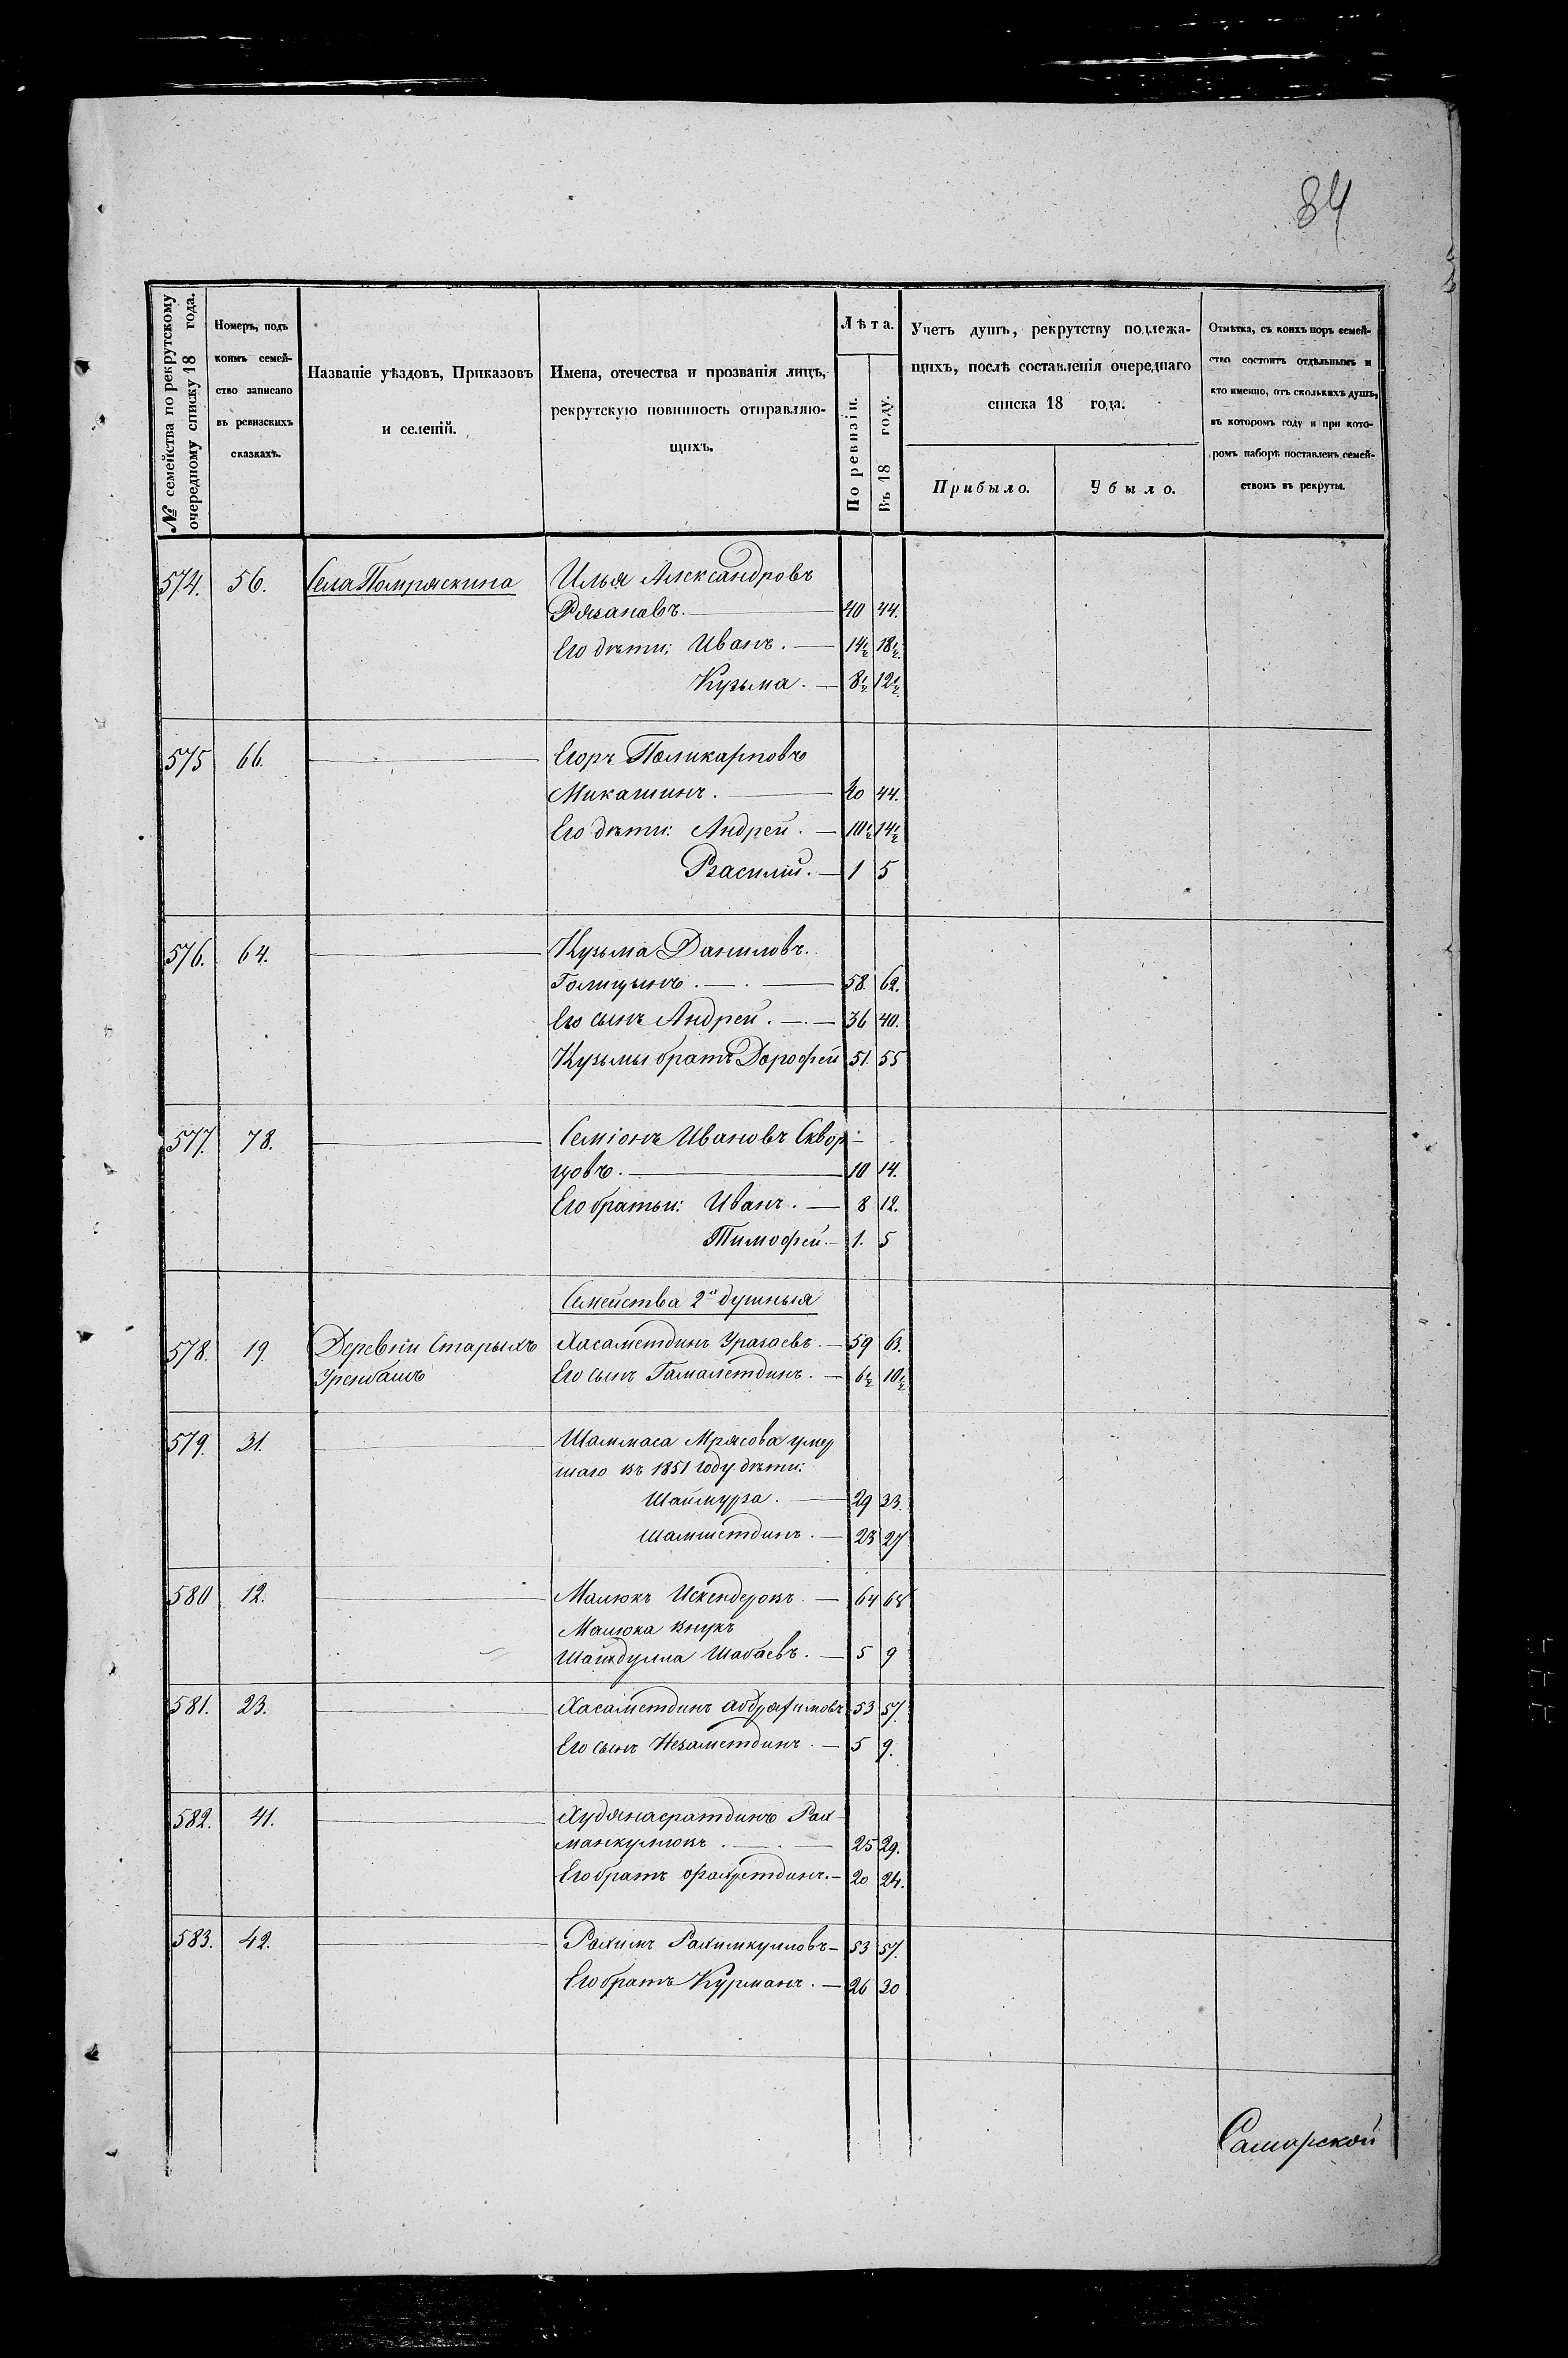 84
№ семейства по рекрутскому
очередному списку 18 года.
Номеръ, подъ
коимъ семей-
ство записано
въ ревизскихъ
сказкахъ.
Названіе уѣздовъ, Приказовъ
и селеній.
Имена, отечества и прозванія лицъ,
рекрутскую повинность отправляю-
щихъ.
Лѣта.
По ревизіи.
Въ 18 году.
Учетъ душъ, рекрутству подлежа-
щихъ, послѣ составленія очереднаго
списка 18 года.
Прибыло.
Убыло.
Отмѣтка, съ коихъ поръ семей-
ство состоитъ отдѣльнымъ и
кто именно, отъ сколькихъ душъ,
въ которомъ году и при кото-
ромъ наборѣ поставленъ семей-
ствомъ въ рекруты.
574. 56. Села Помряскина Илья Александровъ
Рязановъ. 40 44.
Его дѣти: Иванъ. 14½ 18½.
Кузьма. 8½ 12½.
575 66. Егоръ Поликарповъ
Микашинъ. 40 44.
Его дѣти: Андрей. 10½ 14½
Василій. 1 5
576. 64. Кузьма Даниловъ.
Голицынъ. 58. 62.
Его сынъ Андрей. 36 40.
Кузьмы братъ Дорофей 51 55
577. 78. Семіонъ Ивановъ Сквор-
цовъ. 10 14.
Его братьи: Иванъ. 8 12.
Тимофей. 1. 5
Семейства 2х душныя
578. 19. Деревни Старыхъ Хасаметдинъ Уразаевъ. 59 63.
Уренбашъ Его сынъ Гамалетдинъ. 6½ 10½
579. 31. Шаммаса Мрясова умер
шаго въ 1851 году дѣти:
Шаймурза. 29 33.
Шамшетдинъ. 23 27
580 12. Малюкъ Искендеровъ. 64 68
Малюка внукъ
Шайхдулла Шабаевъ. 5 9
581. 23. Хасаметдинъ Абдрахимовъ 53 57.
Его сынъ Незаметдинъ. 5 9.
582. 41. Худянасратдинъ Рах-
манкуловъ. 25 29.
Его братъ Фахретдинъ. 20 24.
583. 42. Рахимъ Рахимкуловъ 53 57.
Его братъ Курманъ. 26 30
Самарской